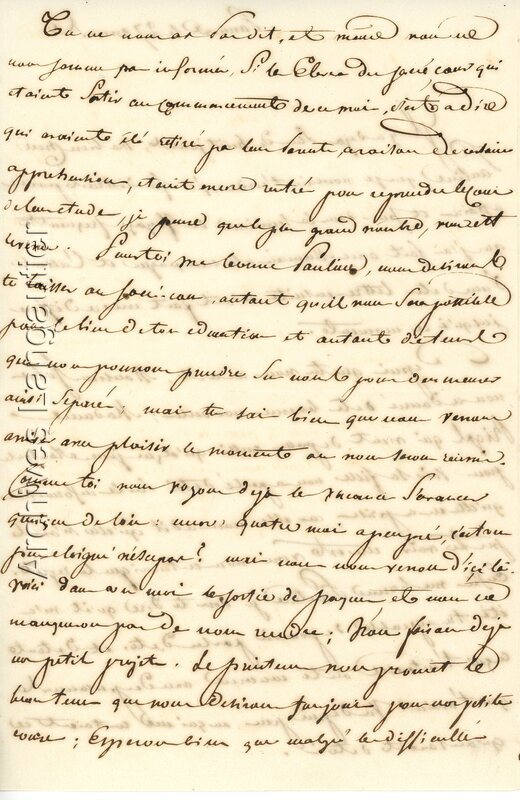 Tu ne nous as pas dit, et meme nous ne
nous somme pas informée, Si les Eleve du sacré cœur qui
etaiente Sortis au commancemente de ce moi, c'est a dire
qui avaiente été retiré par leur Parents, a raison de certaine
apprehension, etait encore rentré pour reprendre le Cour
de leur etude, je pense que le plus grand nombre, sera
Pour toi ma bonne Pauline, nous desirons
te laisser au Sacré-cœur, autant qu'il nous Sera possible
pour le bien de ton education et autant de tems
que nous pourrons prendre Sur nous pour demeurer
ainsi Separé; mai tu sai bien que nous verrons
arriver avec plaisir le momente ou nous serons reunir.
Comme toi nous voyons deja les vacance S'avancer
quoique de loin: encore quatre moi a peu pré, c'est un
peu eloigné n'est-ce pas? mai nous nous verrons d'ici là.
Voici dans un moi la Sortie de Paques et nous ne
manquerons pas de nous rendre; Nous faisons déja
nos petit projets. Le printems nous promet le
beau tems que nous desirons toujours pour nos petite
course; Esperons bien que malgré le difficulté
Archives Launaguet.org